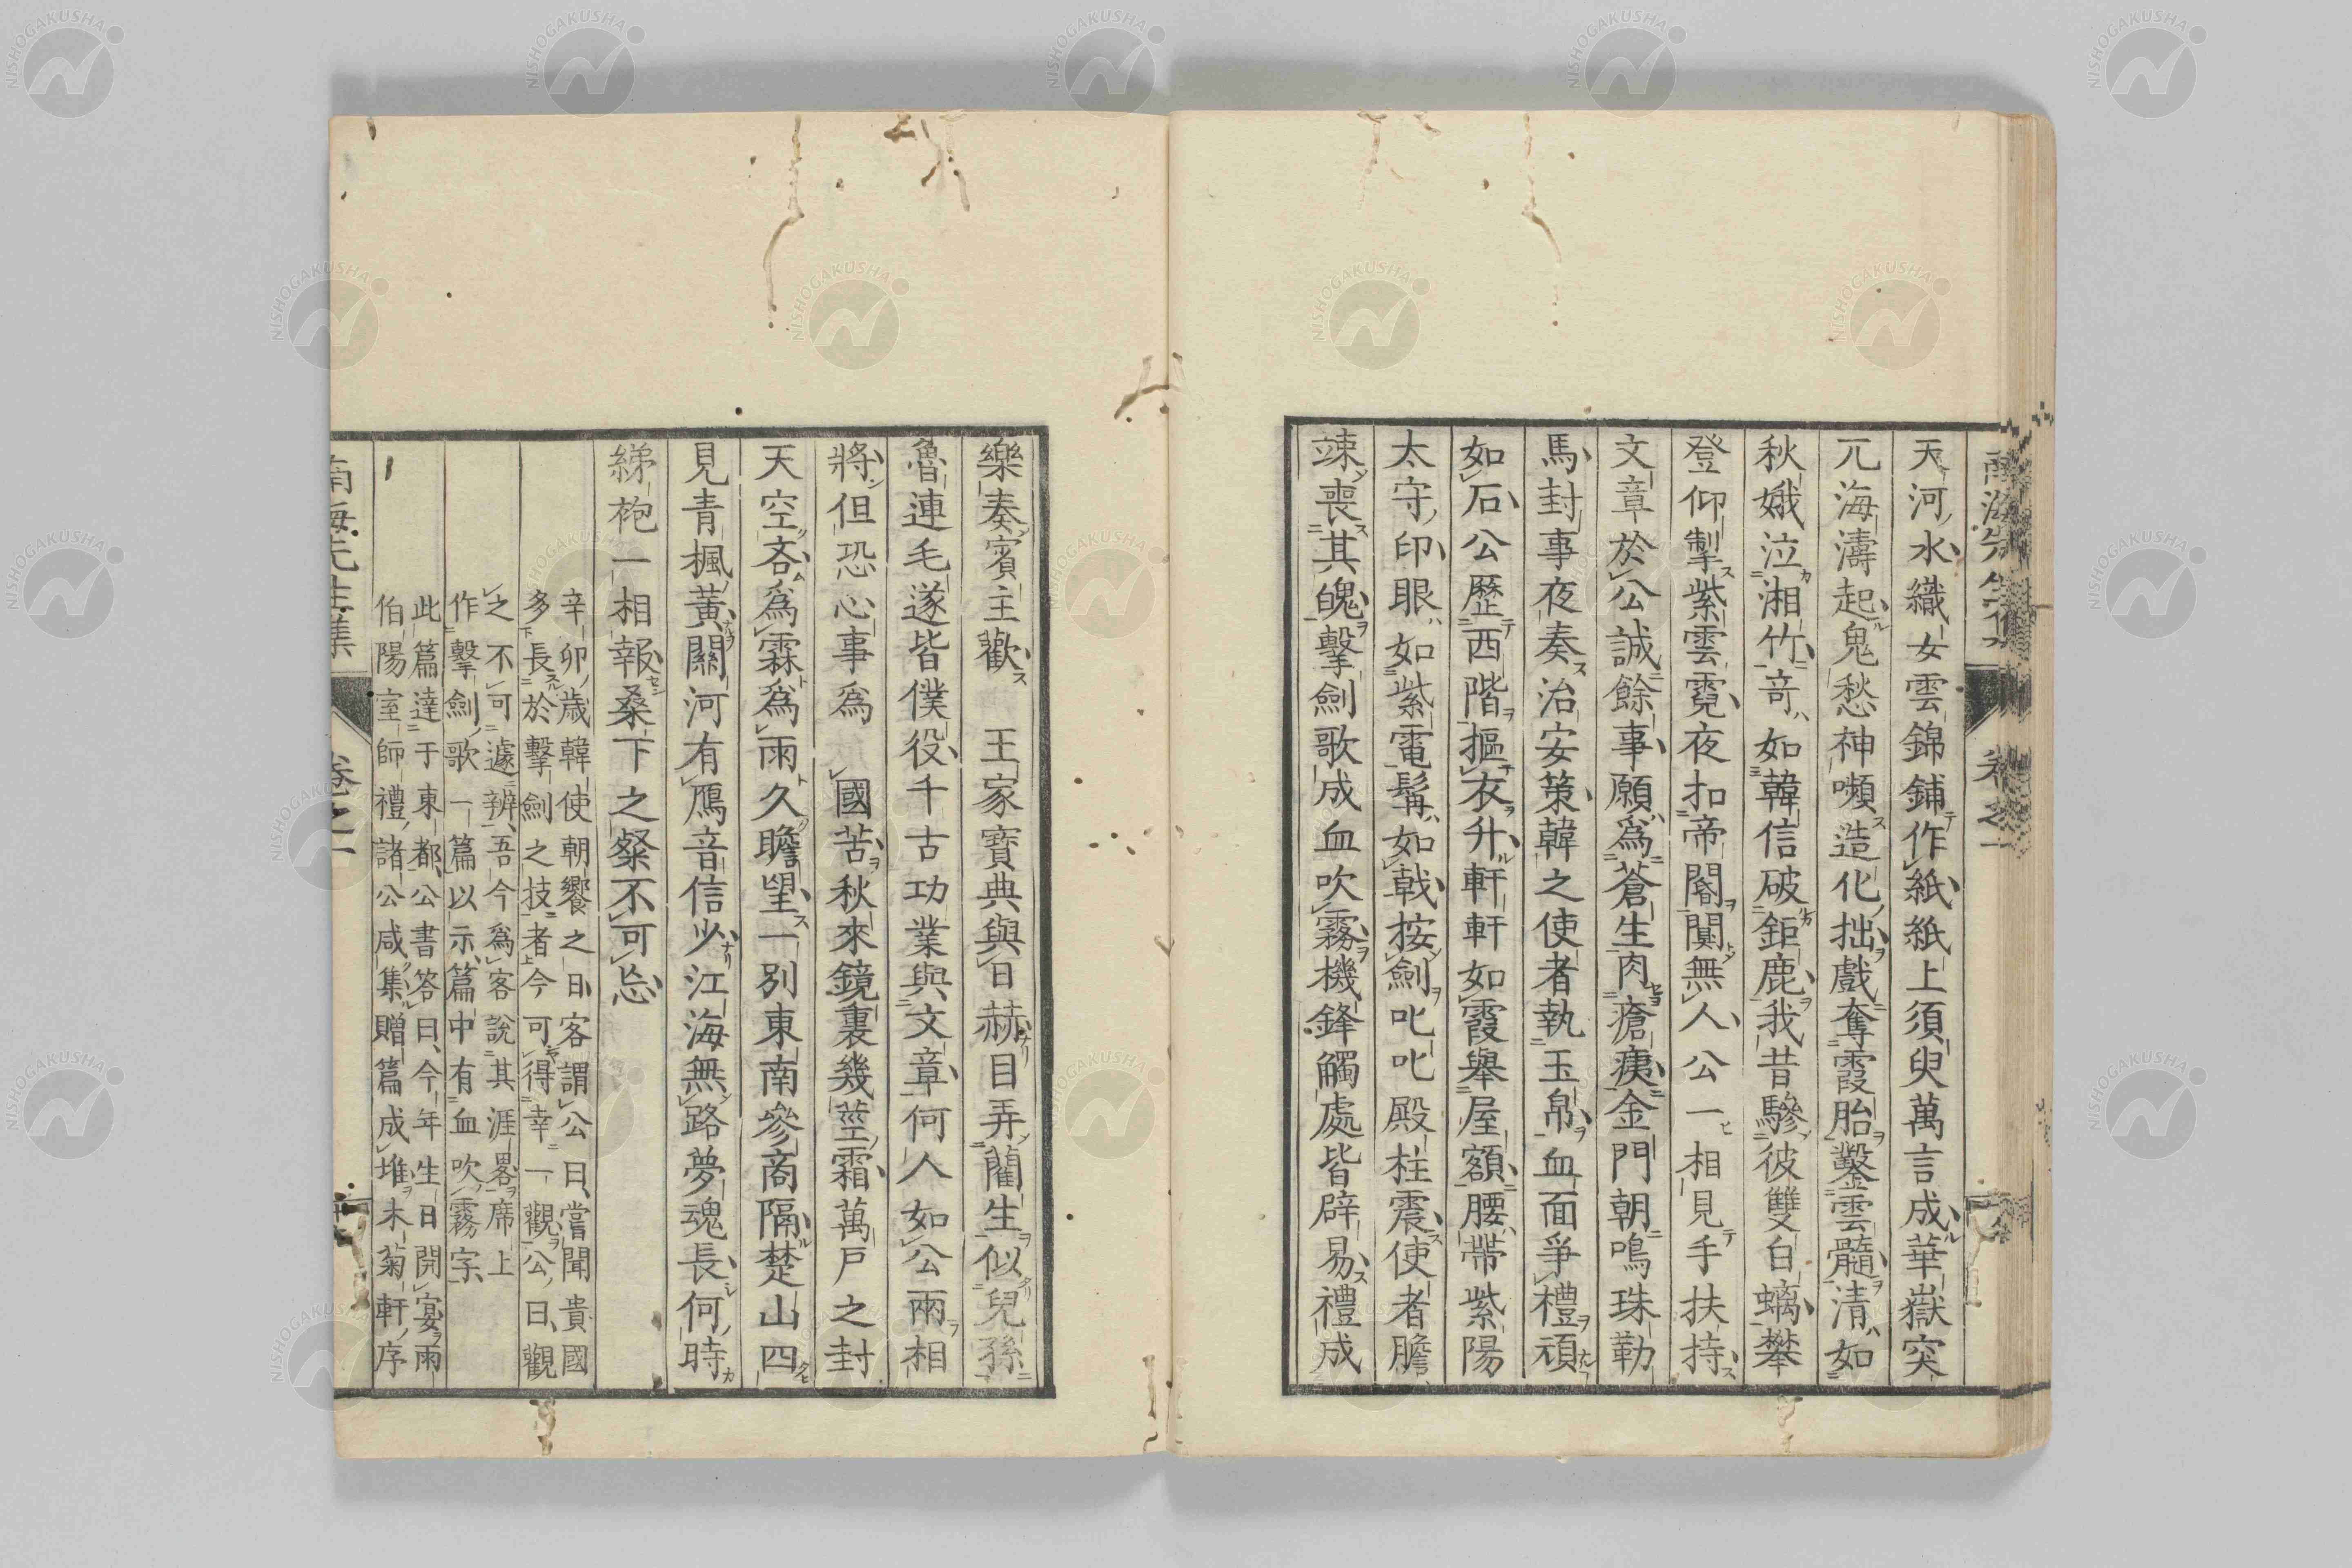 天河水織女雲錦鋪作紙紙上須臾萬言成華嶽突
兀海濤起鬼愁神嚬造化拙戲奪霞胎鑿雲髓清如
秋娥泣湘竹奇如韓信破鉅鹿我昔驂彼雙白螭攀
登仰掣紫雲霓夜扣帝閽闃無人公一相見手扶持
文章於公誠餘事願爲蒼生肉瘡痍金門朝鳴珠勒
馬封事夜奏治安策韓之使者執玉帛血面爭禮頑
如石公歷西階摳衣升軒軒如霞舉屋額腰帶紫陽
太守印眼如紫電髯如戟按劍叱叱殿柱震使者膽
竦喪其魄擊劍歌成血吹霧機鋒觸處皆辟易禮成
樂奏賓主歡 王家寶典與日赫目弄藺生似兒孫
魯連毛遂皆僕役千古功業與文章何人如公兩相
將但恐心事爲 國苦秋來鏡裏幾莖霜萬戶之封
天空吝爲霖爲雨久瞻望一別東南參商隔楚山四
見青楓黃關河有鴈音信少江海無路夢魂長何時
綈袍一相報桑下之粲不可忘
辛卯歳韓使朝饗之日客謂公曰嘗聞貴國
多長於擊劍之技者今可得幸一觀公曰觀
之不可遽辨吾今爲客說其涯畧席上
作擊劍歌一篇以示篇中有血吹霧字
此篇達于東都公書答曰今年生日開宴兩
伯陽室師禮諸公咸集贈篇成堆木菊軒序
南海先生集 卷之一